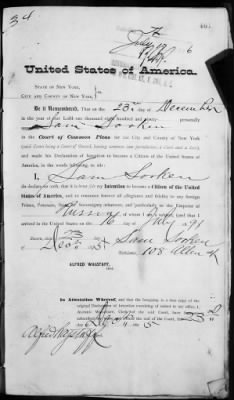 United States of America.
STATE OF NEW YORK,
CITY AND COUNTY OF NEW YORK,
Be it Remembered, That on the 23rd day of December
in the year of our Lord one thousand eight hundred and ninety-
personally appeared
Sam Sorken
in the Court of Common Pleas for the City and County of New York
(said Court being a Court of Record, having common law jurisdiction, a Clerk and a Seal),
and made his Declaration of Intention to become a Citizen of the United States of
America, in the words following, to wit:
I, Sam Sorken
do declare on oath, that it is bona fide my Intention to become a Citizen of the United
States of America, and to renounce forever all allegiance and fidelity to any foreign
Prince, Potentate, State or Sovereignty whatever, and particularly to the Emperor of
Russia of whom I am a subject, and that I
arrived in the United States on the 16 of July 1891
Sworn, this 23
Sam Sorken
Residence, 108 Allen st
ALFRED WAGSTAFF,
Clerk.
In Attestation Whereof, and that the foregoing is a true copy of the
original Declaration of Intention remaining of record in my office, I,
Alfred Wagstaff